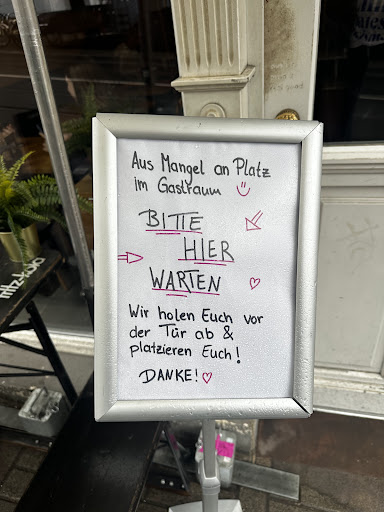 Aus Mangel an Platz
im Gastraum
BITTE
HIER
WARTEN
Wir holen Euch vor
der Tür ab &
platzieren Euch!
DANKE!